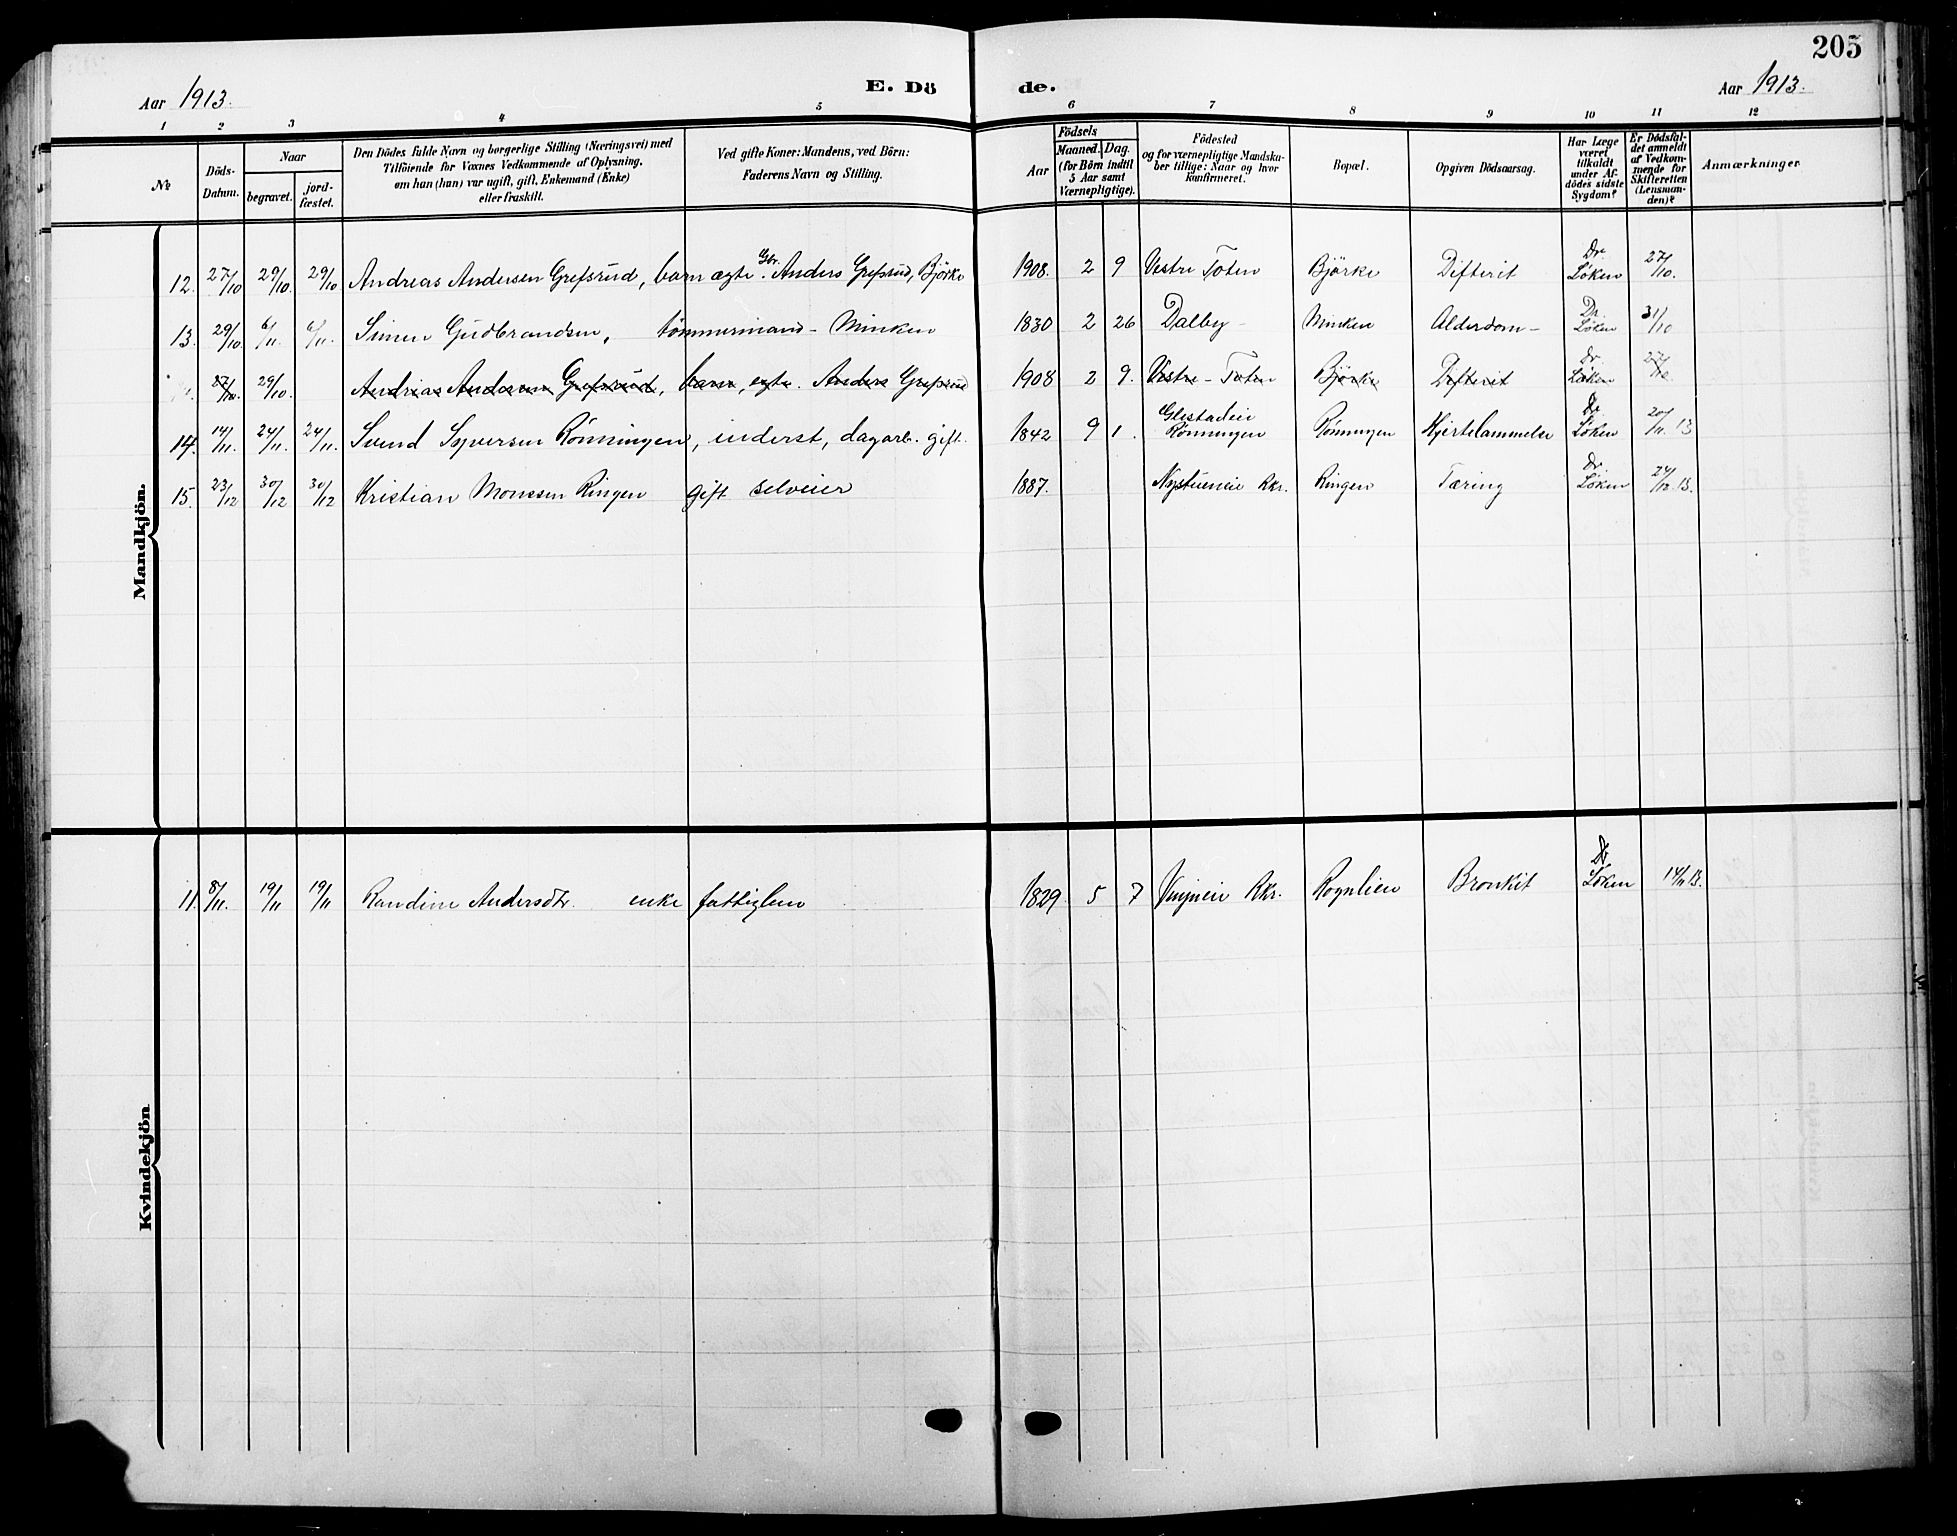 205
Aar 1913. E. Dö de. Aar 1913.
1 2 3 4 5 6 7 8 9 10 11 12
№
Döds-
Datum.
Naar
begravet.
jord-
fæstet.
Den Dödes fulde Navn og borgerlige Stilling (Næringsvei) med
Tilföiende for Voxnes Vedkommende af Oplysning,
om han (hun) var ugift, gift, Enkemand (Enke)
eller fraskilt.
Ved gifte Koner: Mandens, ved Börn:
Faderens Navn og Stilling.
Födsels
Aar
Maaned. Dag.
(for Börn indtil
5 Aar samt
Værnepligtige).
Födested
og for værnepligtige Mandska-
ber tillige: Naar og hvor
konfirmeret.
Bopæl.
Opgiven Dödsaarsag.
Har Læge
været
tilkaldt
under Af-
dödes sidste
Sygdom?
Er Dödsfal-
det anmeldt
af Vedkom-
mende for
Skifteretten
(Lensman-
den)?
Anmærkninger
Mandkjön.
12. 27/10 29/10. 29/10 Andreas Andersen Grefsrud, barn ægte Gbr. Anders Grefsrud, Björke 1908. 2 9 Vestre Toten Björke Difterit Dr. Löken 27/10.
13. 29/10. 6/11. 6/11. Simen Gudbrandsen, tömmermand - Minken 1830 2 26 Dalby - Minken Alderdom - Dr. Løken 31/10
27/10. 29/10. Andreas Andersen Grefsrud, barn, egte. Anders Grefsrud 1908 2 9. Vestre - Toten Björke Difterit Dr. Löken 27/10.
14. 14/11. 24/11. 24/11. Svend Syversen Rønningen, inderst, dagarb. gift. 1842 9 1. Rønningen Rönningen Hjertelammelse Dr. Löken 20/11. 13
15. 23/12 30/12 30/12 Kristian Monssen Ringen gift selveier 1887. Nystueneie Rkr. Ringen Tæring Dr. Löken 24/12. 13.
Kvindekjön
11. 8/11. 19/11 19/11 Randine Andersdtr. enke fattiglem 1829 5 7 Rkr. Rognlien Bronkit Dr Löken 14/11 13.